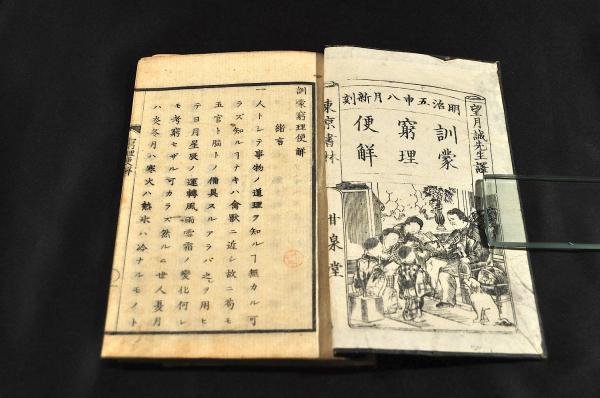 明治五申八月新刻
望月誠先生譯
訓蒙
窮理
便解
東京書林
甘泉堂
訓蒙窮理便解
緒言
一人トシテ事物ノ道理ヲ知ルヿ無カル可
ラズ知ルヿナキハ禽獣ニ近シ故ニ苟モ
五官ト脳トノ備具スルアラバ之ヲ用ヒ
テ日月星辰ノ運轉風雨雪霜ノ變化何レ
モ考窮セザル可カラズ然ルニ世人夏月
ハ炎冬月ハ寒火ハ熱氷ハ冷ナルモノト
窮理便解